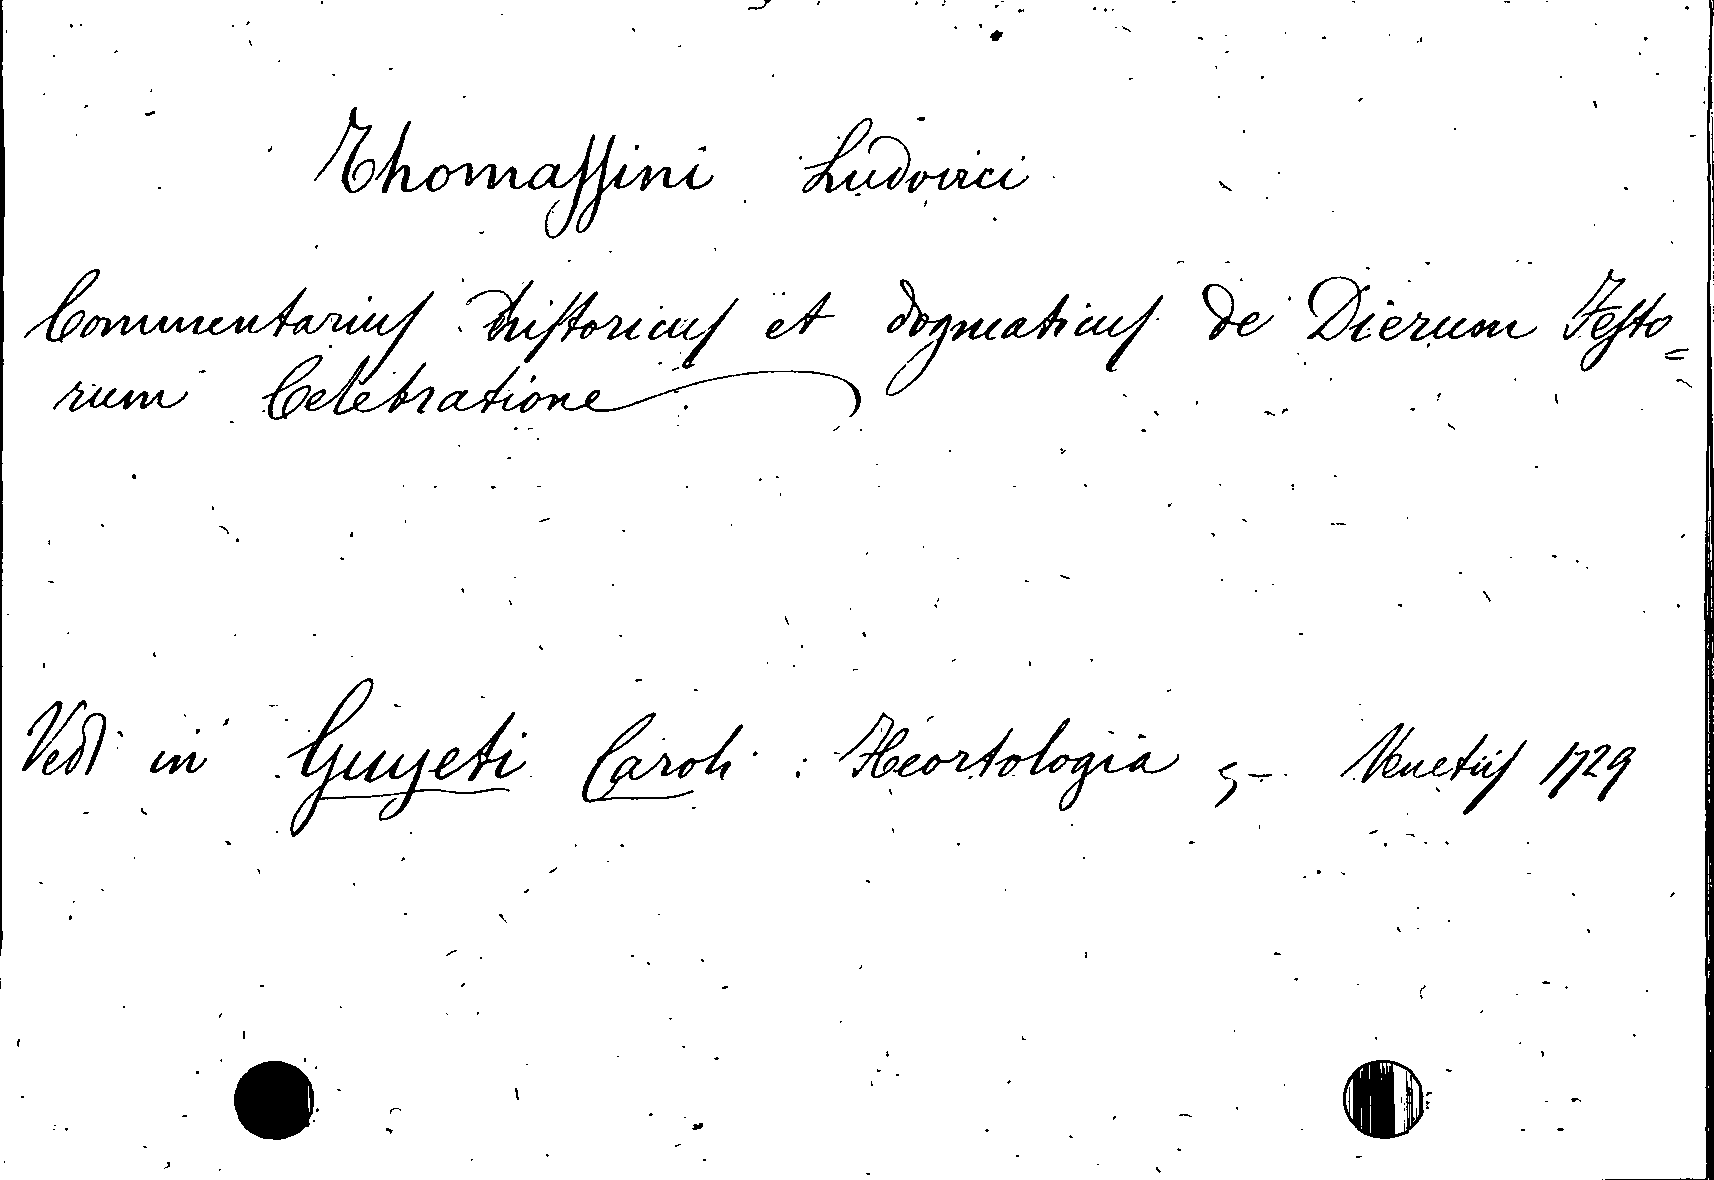 Thomassini Ludovici
Commentarius historicus et dogmaticus de Dierum Festo=
rum Celebratione
Vedi in Guyeti Caroli : Heortologia Venetiis 1729